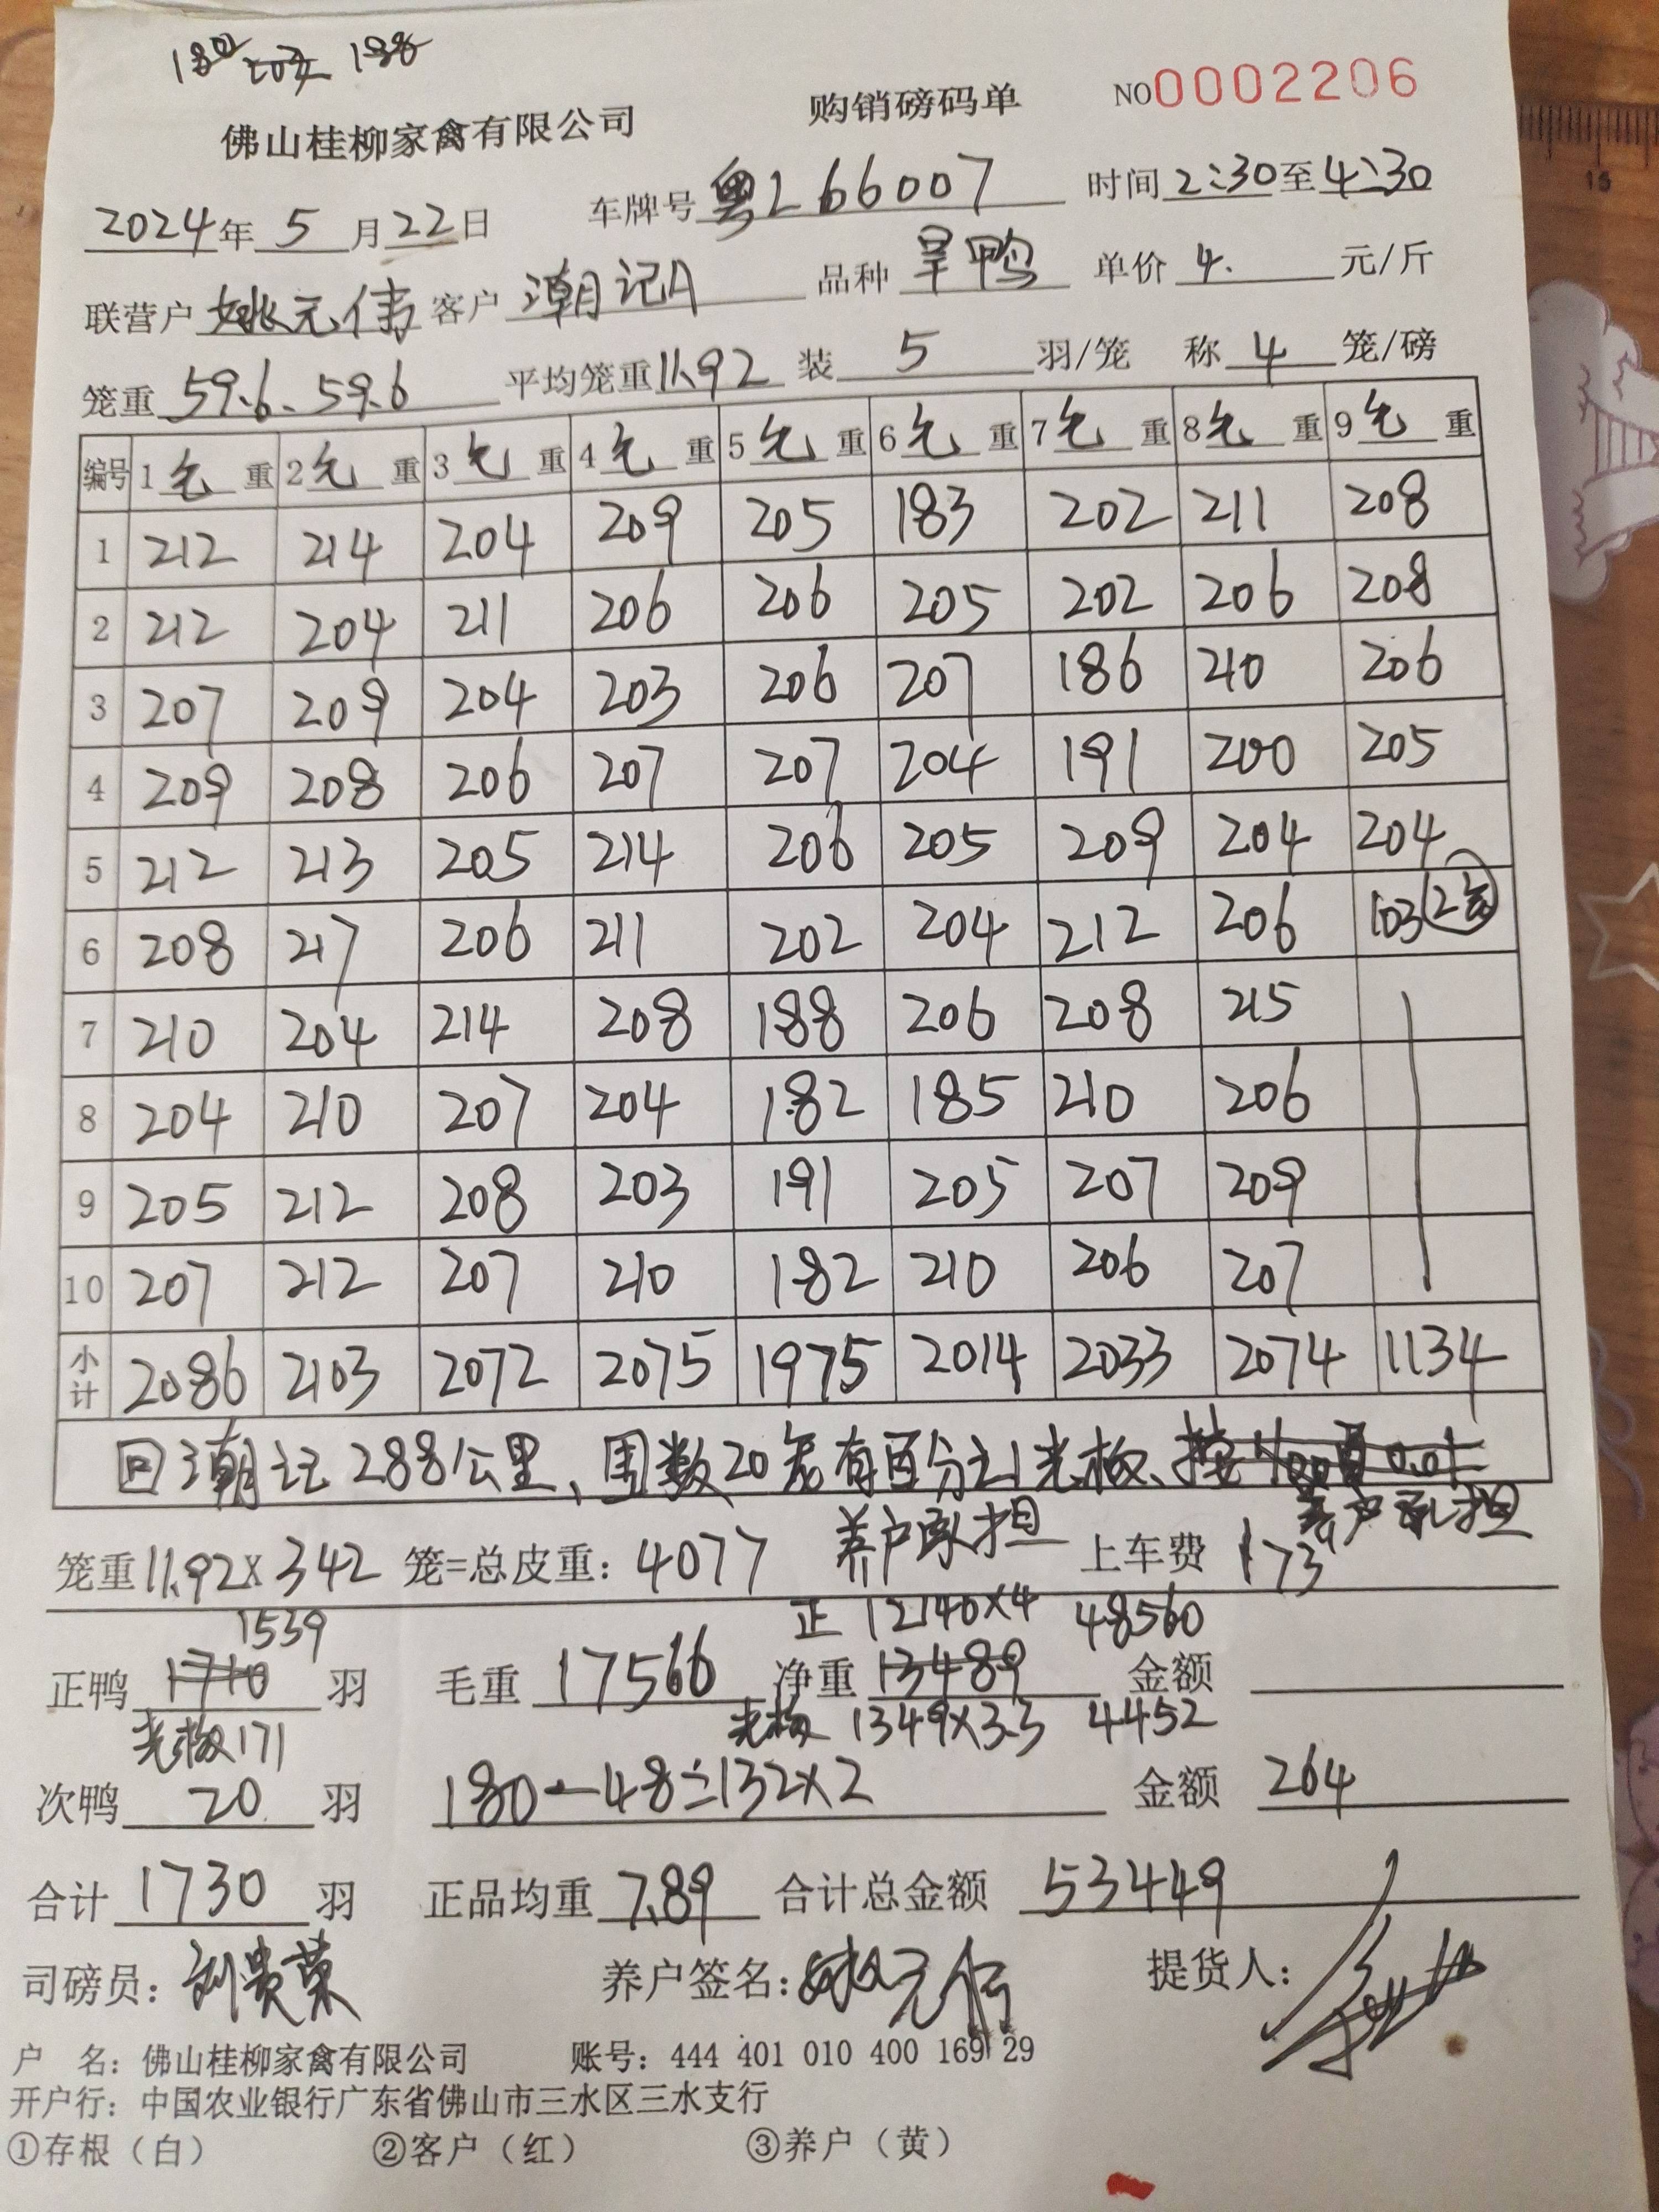 佛山桂柳家禽有限公司 购销磅码单 NO0002206
2024年5月22日 车牌号粤L66007 时间2:30至4:30
联营户姚元伟 客户潮记A 品种旱鸭 单价4. 元/斤
笼重59.6、59.6 平均笼重11.92 装5羽/笼 称4笼/磅
编号 1毛重 2毛重 3毛重 4毛重 5毛重 6毛重 7毛重 8毛重 9毛重
1 212 214 204 209 205 183 202 211 208
2 212 204 211 206 206 205 202 206 208
3 207 209 204 203 206 207 186 210 206
4 209 208 206 207 207 204 191 200 205
5 212 213 205 214 206 205 209 204 204
6 208 217 206 211 202 204 212 206 103 2笼
7 210 204 214 208 188 206 208 215
8 204 210 207 204 182 185 210 206
9 205 212 208 203 191 205 207 209
10 207 212 207 210 182 210 206 207
小计 2086 2103 2072 2075 1975 2014 2033 2074 1134
回潮记288公里、围数20笼有百分之1光板、
养户承担 养户承担
笼重11.92×342笼=总皮重:4077 上车费173
1539 正 12140×4 48560
正鸭1710羽 毛重17566 净重13489 金额
光板171 光板 1349×3.3 4452
次鸭20羽 180-48=132×2 金额264
合计1730羽 正品均重7.89 合计总金额53449
司磅员:刘贵荣 养户签名:姚元伟 提货人:
户 名:佛山桂柳家禽有限公司 账号:444 401 010 400 169 29
开户行:中国农业银行广东省佛山市三水区三水支行
①存根(白) ②客户(红) ③养户(黄)